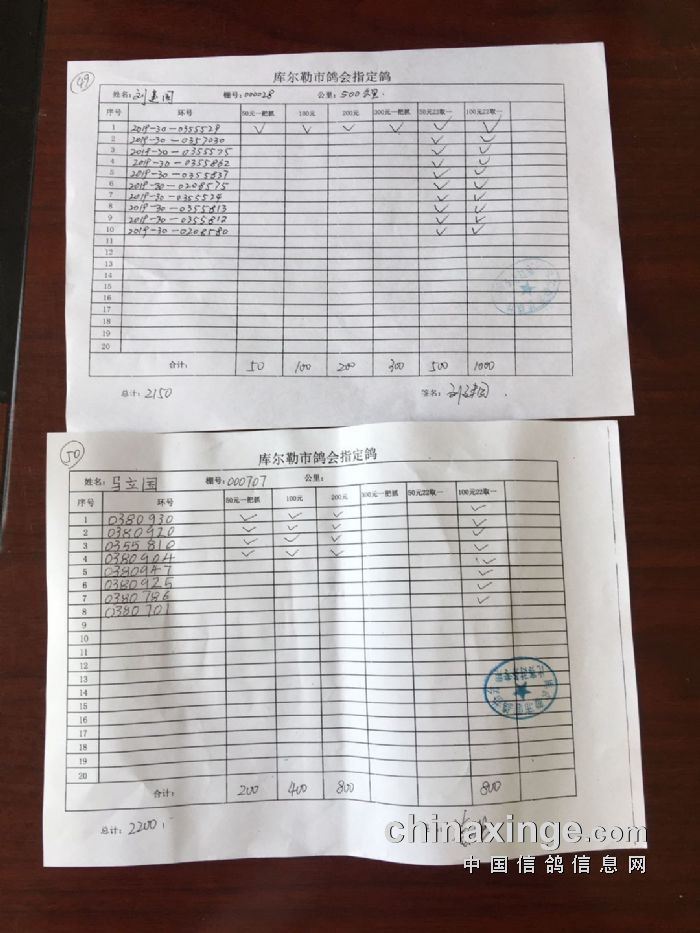 49
库尔勒市鸽会指定鸽
姓名: 刘建国 棚号: 000028 公里: 500公里.
序号 环号 50元一把抓 100元 200元 300元一把抓 50元22取一 100元22取一
1 2019-30-0355529 ✓ ✓ ✓ ✓ ✓ ✓
2 2019-30-0357030 ✓ ✓
3 2019-30-0355575 ✓ ✓
4 2019-30-0355862 ✓ ✓
5 2019-30-0355837 ✓ ✓
6 2019-30-0208575 ✓ ✓
7 2019-30-0355524 ✓ ✓
8 2019-30-0355813 ✓ ✓
9 2019-30-0355812 ✓ ✓
10 2019-30-0208580 ✓ ✓
11
12
13
14
15
16
17
18
19
20
合计: 50 100 200 300 500 1000
总计: 2150 签名: 刘建国.
50
库尔勒市鸽会指定鸽
姓名: 马立国 棚号: 000707 公里:
序号 环号 50元一把抓 100元 200元 300元一把抓 50元22取一 100元22取一
1 0380930 ✓ ✓ ✓ ✓
2 0380920 ✓ ✓ ✓ ✓
3 0355810 ✓ ✓ ✓ ✓
4 0380904 ✓ ✓ ✓ ✓
5 0380947 ✓
6 0380925 ✓
7 0380786 ✓
8 0380701 ✓
9
10
11
12
13
14
15
16
17
18
19
20
合计: 200 400 800 800
总计: 2200
chinaxinge.com
中国信鸽信息网